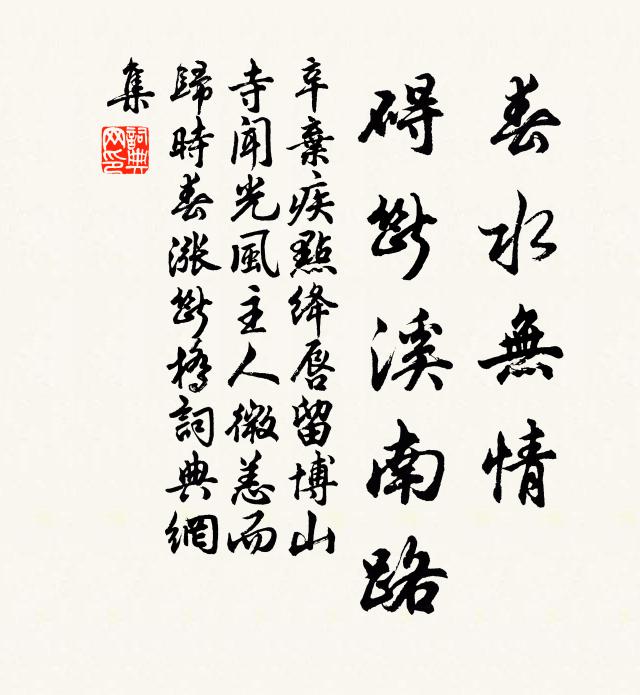 春水無情
碍斷溪南路
辛棄疾點絳唇留博山
寺聞光風主人微恙而
歸時春漲斷橋詞典網
集
詞典
网印